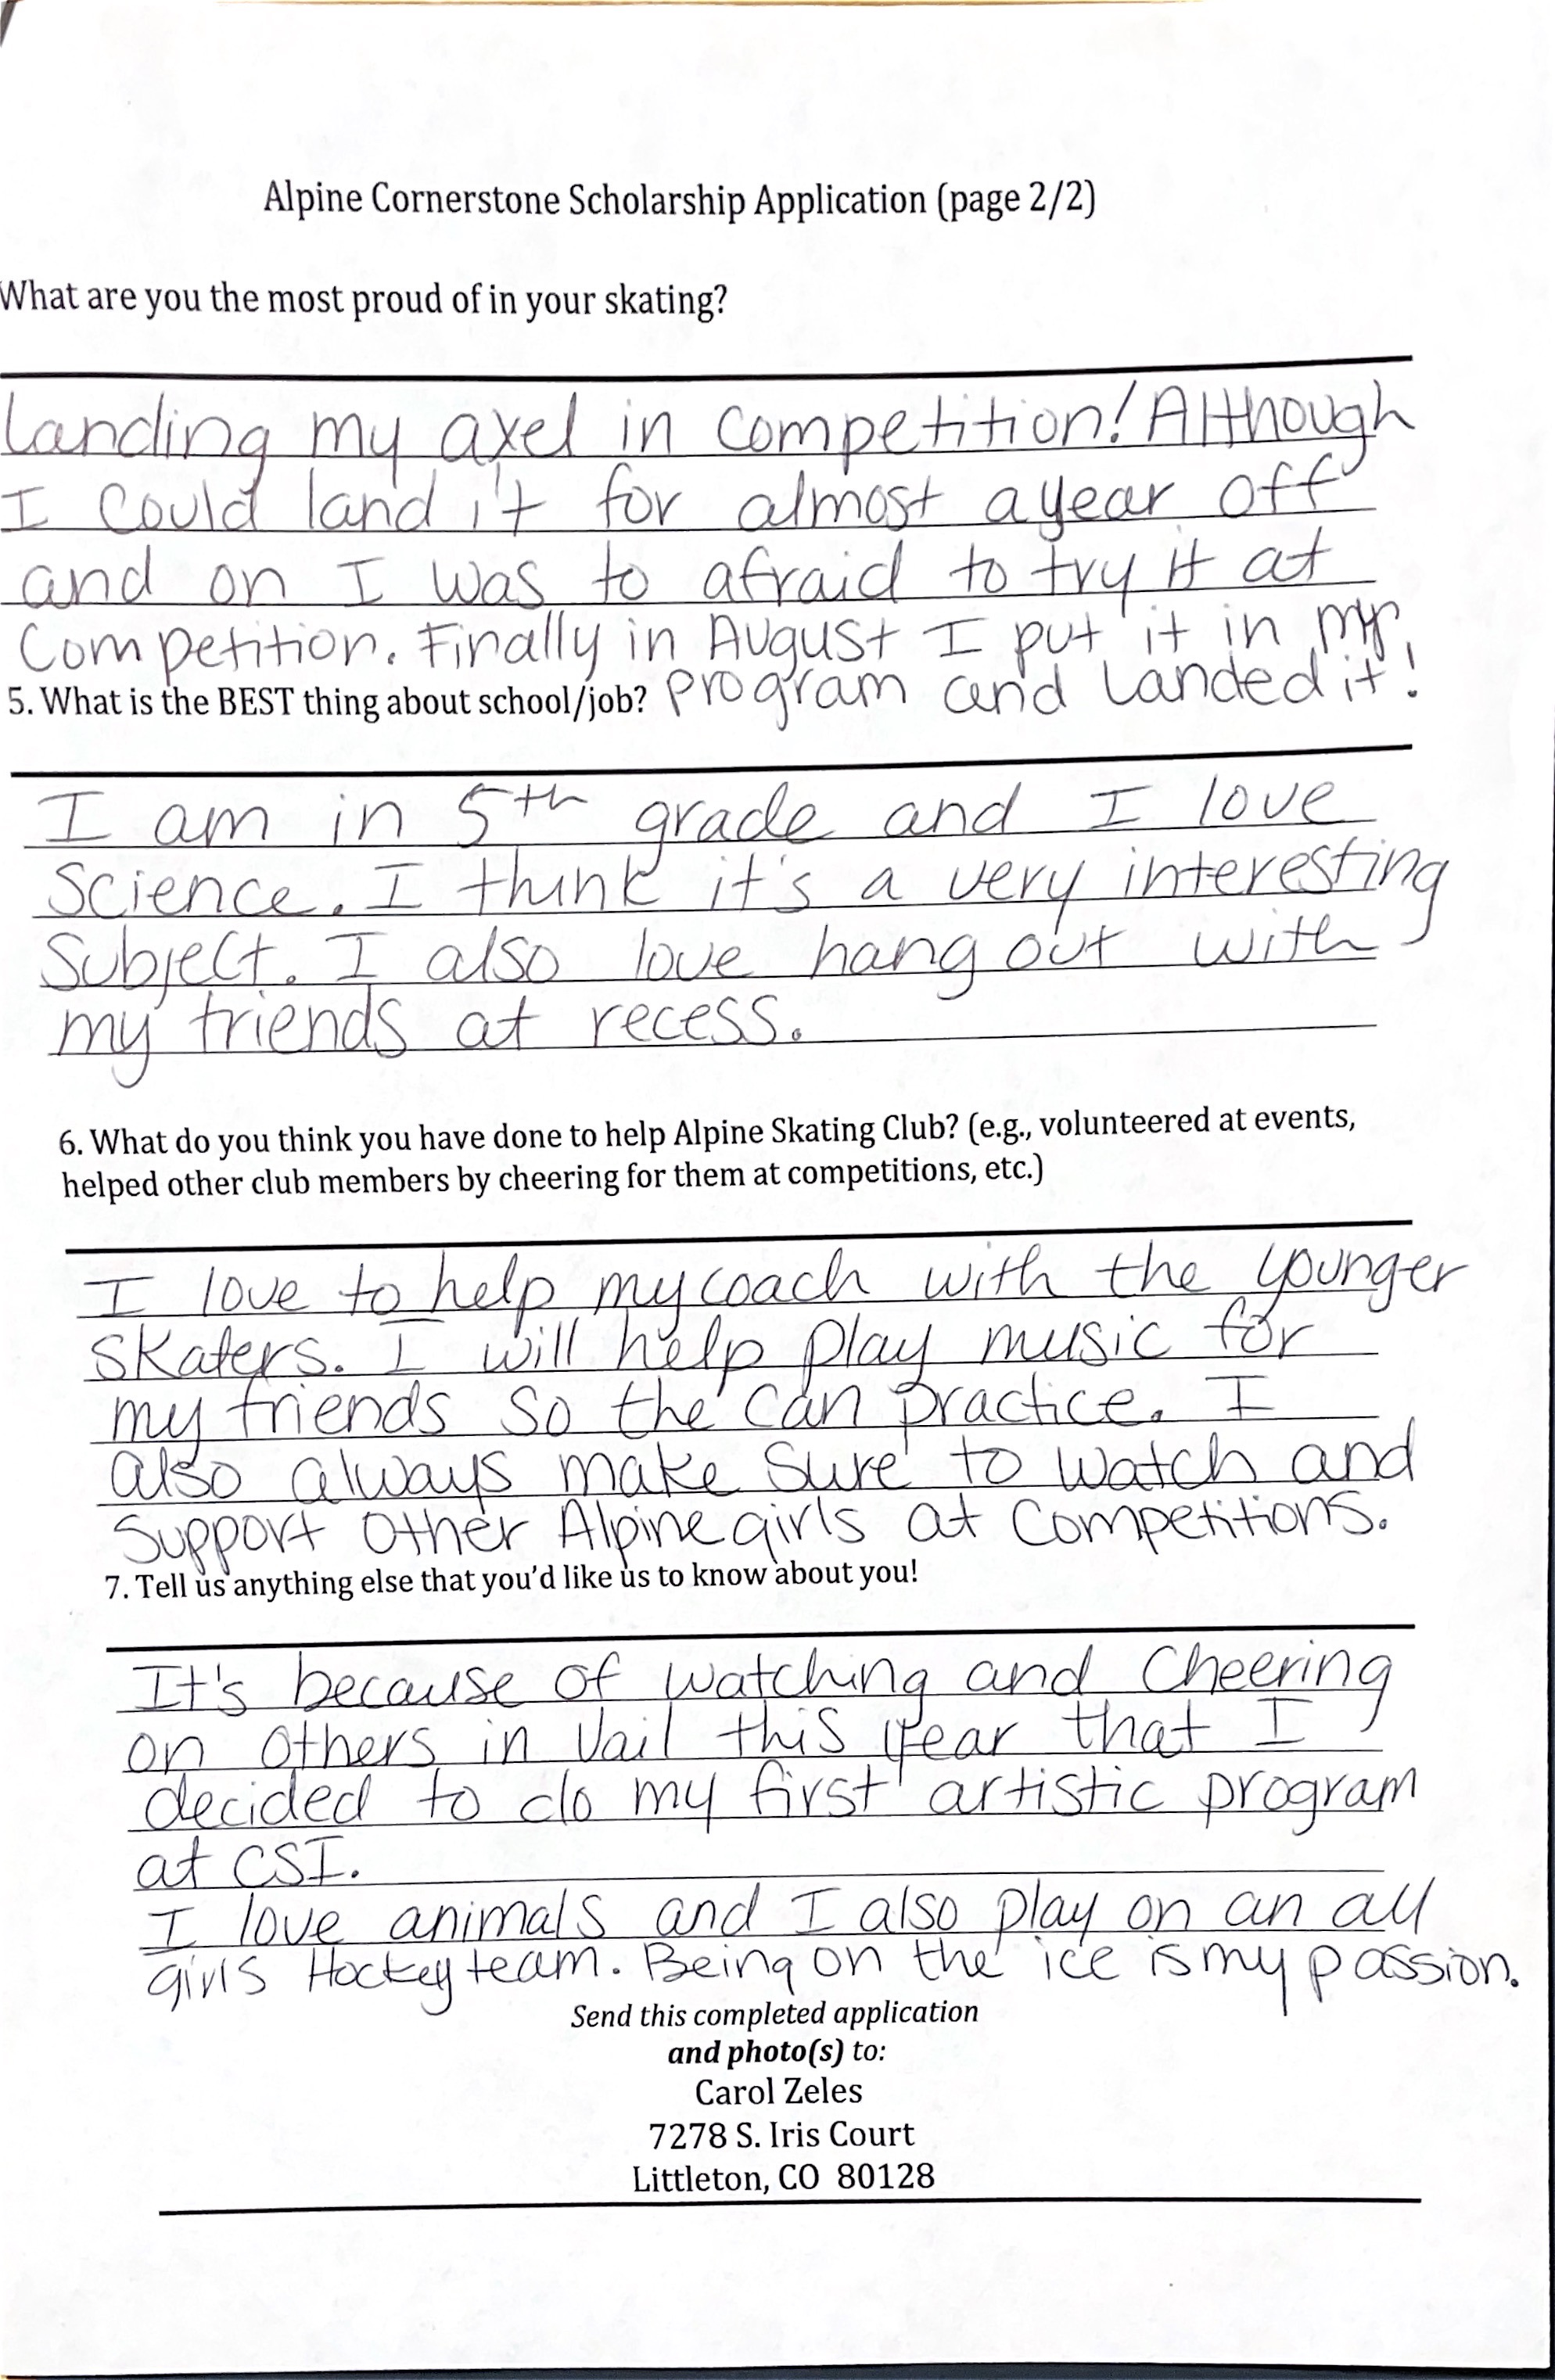 Alpine Cornerstone Scholarship Application (page 2/2)
What are you the most proud of in your skating?
Landing my axel in competition! Although
I could land it for almost a year off
and on I was to afraid to try it at
Competition. Finally in August I put it in my
program and landed it!
5. What is the BEST thing about school/job?
I am in 5th grade and I love
Science. I think it's a very interesting
Subject. I also love hang out with
my friends at recess.
6. What do you think you have done to help Alpine Skating Club? (e.g., volunteered at events,
helped other club members by cheering for them at competitions, etc.)
I love to help my coach with the younger
skaters. I will help play music for
my friends so the can practice. I
also always make sure to watch and
support other Alpine girls at competitions.
7. Tell us anything else that you'd like us to know about you!
It's because of watching and cheering
on others in Vail this year that I
decided to do my first artistic program
at CSI.
I love animals and I also play on an all
girls Hockey team. Being on the ice is my passion.
Send this completed application
and photo(s) to:
Carol Zeles
7278 S. Iris Court
Littleton, CO 80128